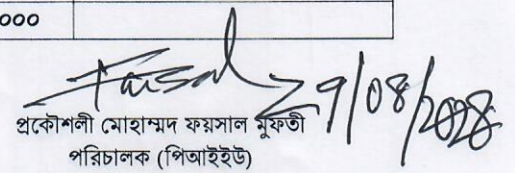 ০০০
Faisal 29/08/2028
প্রকৌশলী মোহাম্মদ ফয়সাল মুফতী
পরিচালক (পিআইইউ)